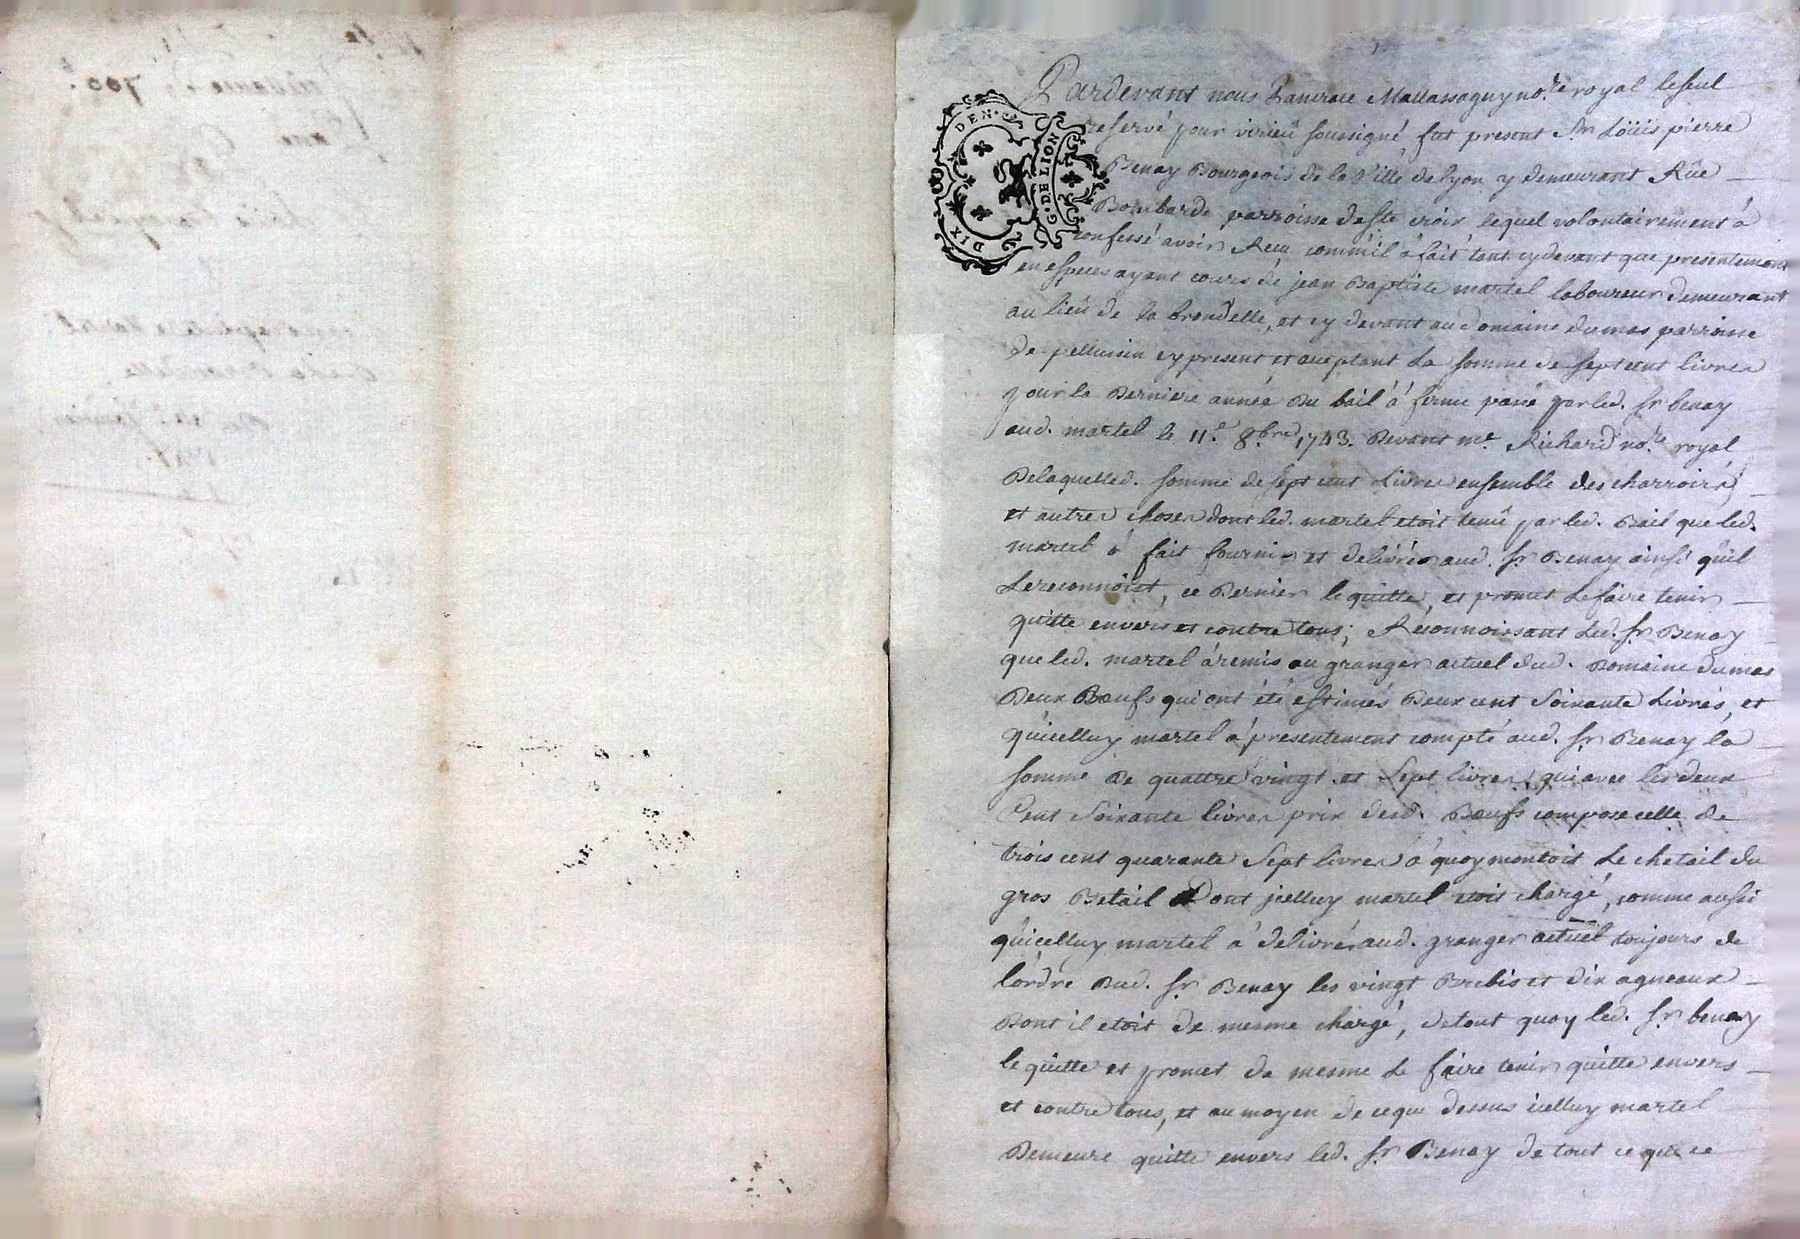 700
Pardevant nous Mallassagny no.re royal le seul
reservé pour virieû soussigné, fut present Sr. Loüis pierre
Benay Bourgeois de la Ville de lyon y demeurant Rûe
Bombarde parroisse de ste croix lequel volontairement à
confessé avoir Receu comm'il à fait tant cydevant que presentement
en especes ayant cours de jean Baptiste martel laboureur demeurant
au lieû de la brondelle, et cy devant au domaine du mas parroisse
de pellussin cy present et acceptant La somme de sept cent livres
pour la Derniere année Du bail à ferme passé par led. Sr. benay
aud. martel le 11.e 8.bre 1743. Devant me. Richard no.re royal
De laquelled. somme de sept cent Livres ensemble des charrois
et autres choses dont led. martel etoit tenû par led. Bail que led.
martel à fait fournir et delivrer aud. Sr. Benay ainsi qu'il
Le reconnoist, ce Dernier le quitte, et promet de faire tenir
quitte envers et contre tous; Reconnoissant Led. Sr. Benay
que led. martel à remis au granger actuel dud. Domaine du mas
Deux Boeufs qui ont été estimés Deux cent Soixante Livres, et
qu'icelluy martel à presentement compté aud. Sr. Benay la
somme De quattre vingt et Sept livres, qui avec les deux
Cent Soixante livres prix desd. Boeufs compose celle de
trois cent quarante Sept livres à quoy montoit Le chetail du
gros Betail Dont icelluy martel etoit chargé, comme aussi
qu'icelluy martel à delivré aud. granger actuel toujours de
l'ordre Dud. Sr. Benay les vingt Brebis et dix agneaux
Dont il etoit de mesme chargé, de tout quoy led. Sr. benay
le quitte et promet de mesme Le faire tenir quitte envers
et contre tous, et au moyen de ceque dessus icelluy martel
Demeure quitte envers led. Sr. Benay de tout ce que ce
G. DE LION
DIX DEN.